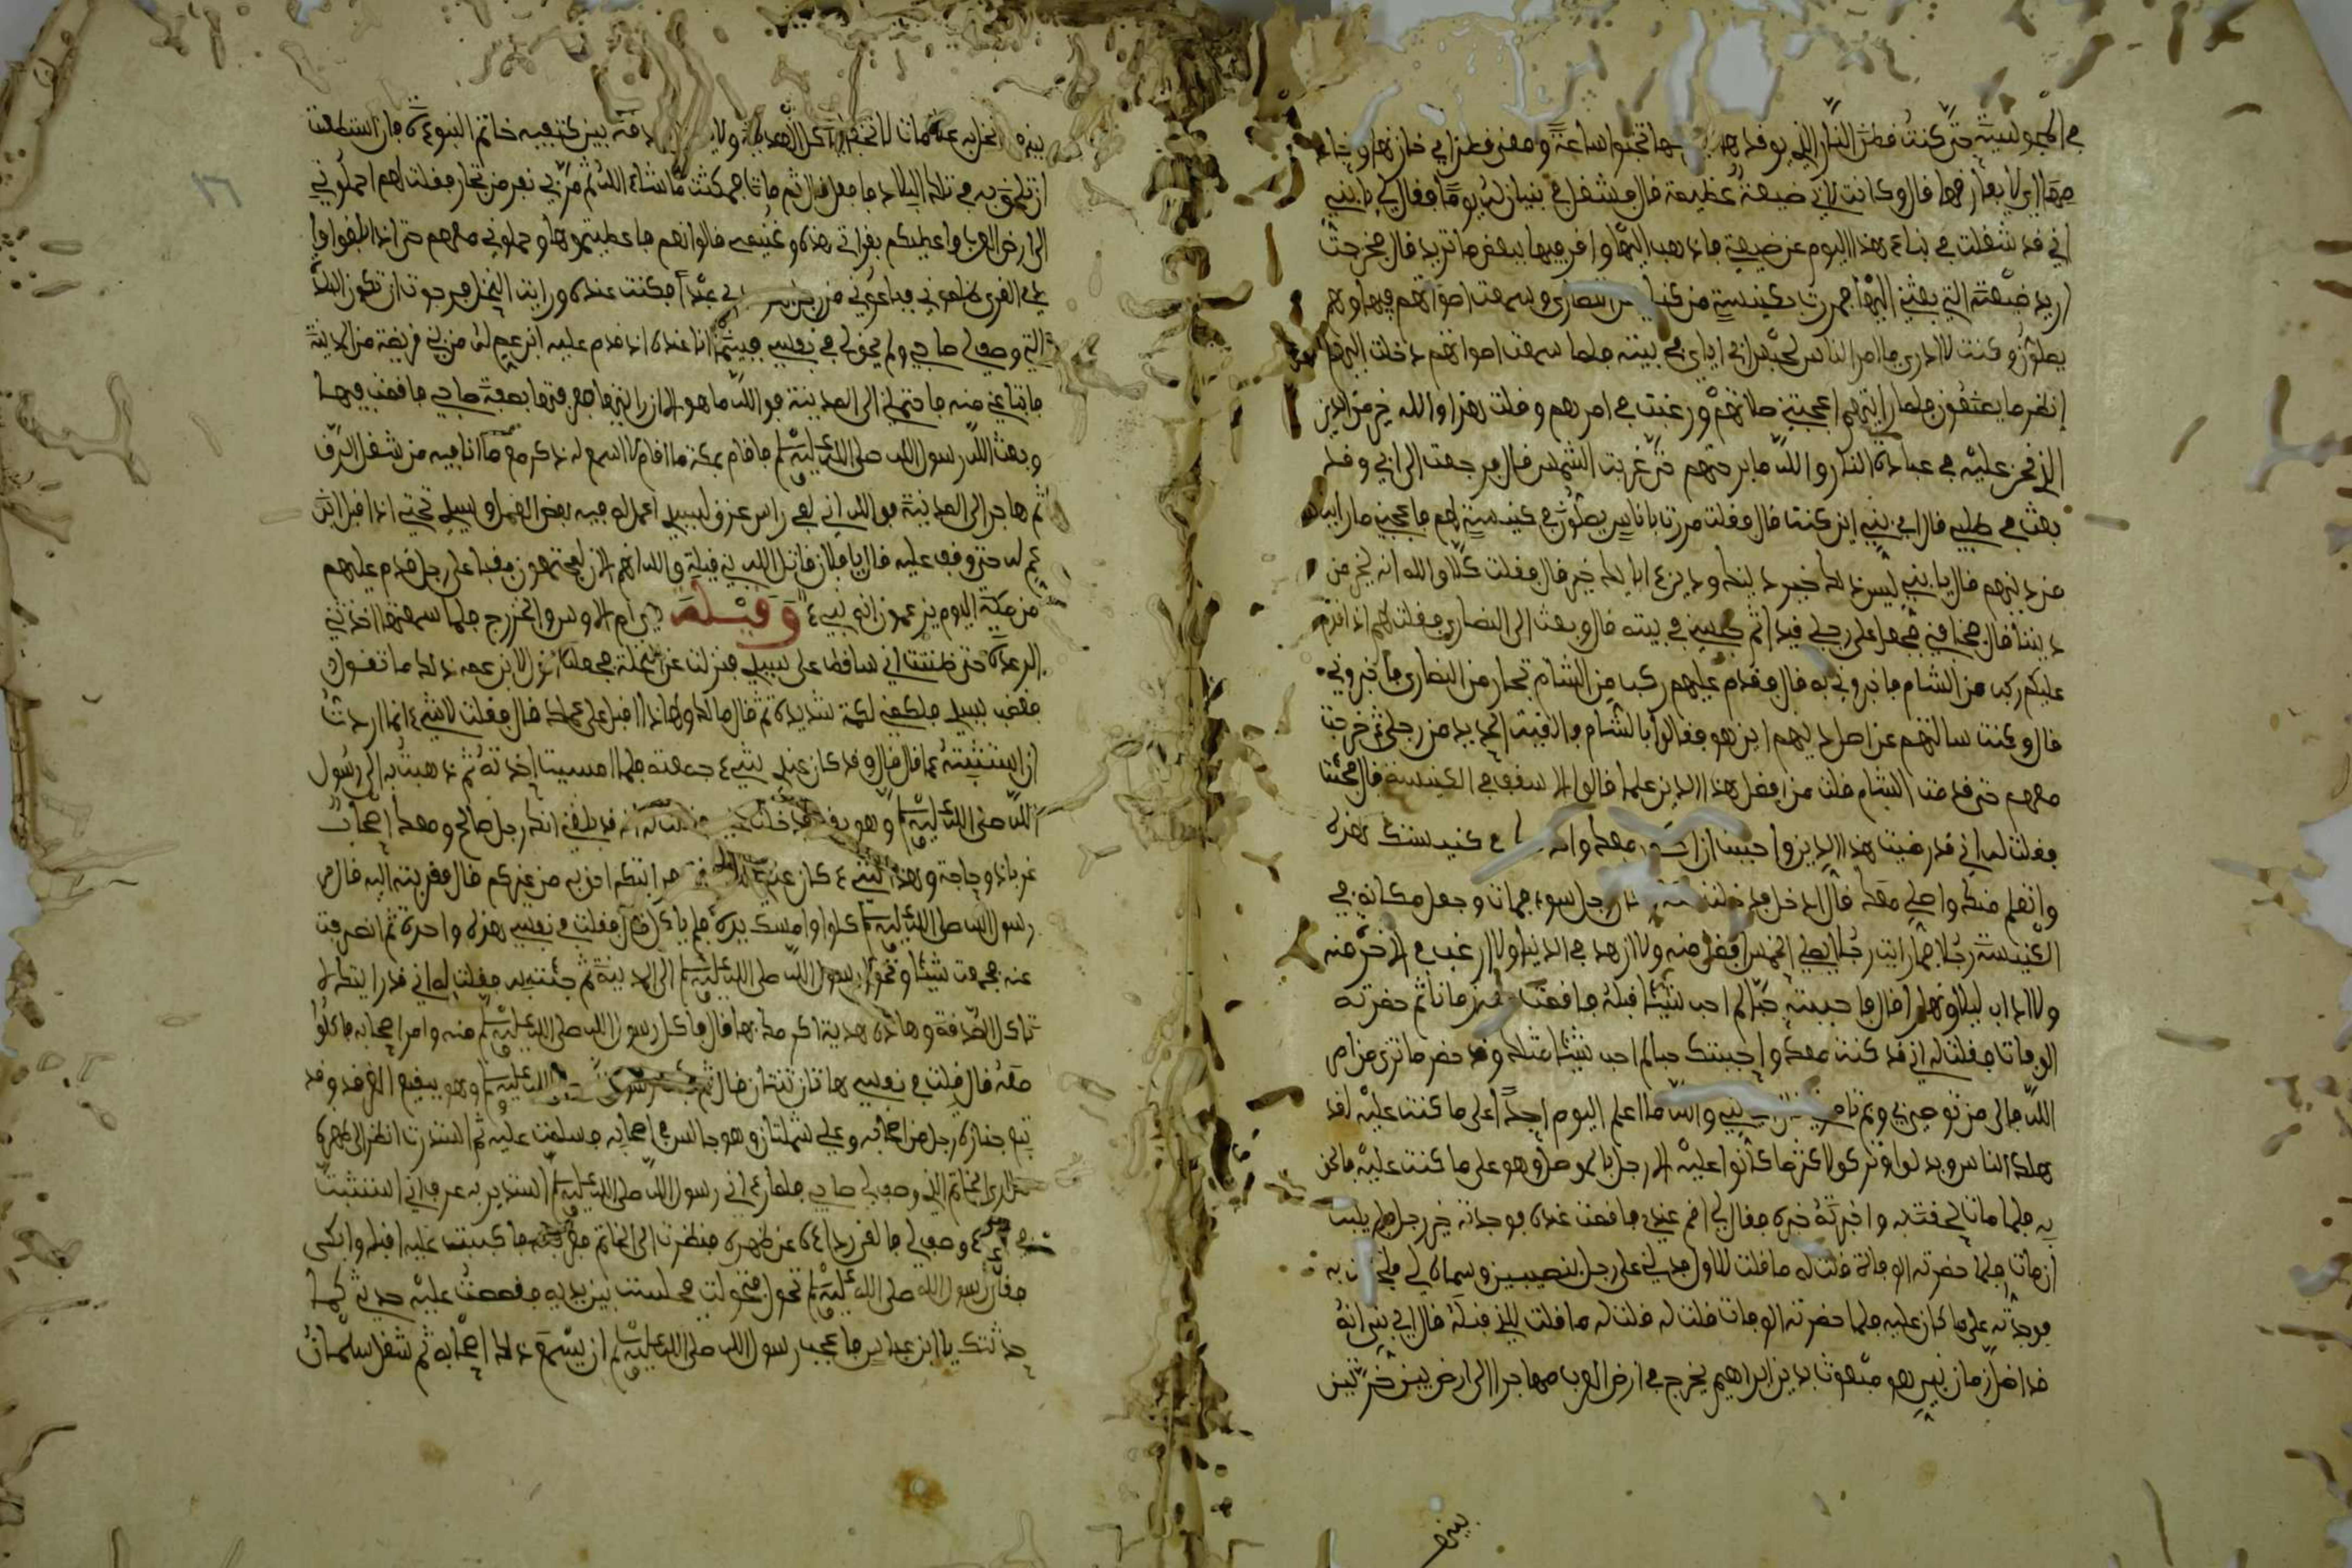 في المجوسية حتى كنت قطن النار الذي يوقدها لا يتركها تخبوا ساعة
حقها اي لا يفارقها قال وكانت لابي ضيعة عظيمة قال فشغل في بنيان له يوما فقال لي يا بني
اني قد شغلت في بناء هذا اليوم عن ضيعتي فاذهب اليها وامر فيها ببعض ما تريد قال فخرجت
اريد ضيعته التي بعثني اليها فمررت بكنيسة من كنايس النصارى وسمعت اصواتهم فيها وهم
يصلون وكنت لا ادري ما امر الناس لحبس ابي اياي في بيته فلما سمعت اصواتهم دخلت اليهم
انظر ما يصنعون فلما رايتهم اعجبتني صلاتهم ورغبت في امرهم وقلت هذا والله خير من الدين
الذي نحن عليه في عبادة النار والله ما برحتهم حتى غربت الشمس قال فرجعت الى ابي وقد
بعث في طلبي قال اي بني اين كنت قال فقلت مررت باناس يصلون في كنيسة لهم فاعجبني ما رايت
من دينهم قال يا بني ليس ذلك خير دينك ودين ءابايك خير قال فقلت كلا والله انه لخير من
ديننا قال فخافني فجعل على رجلي قيدا ثم حبسني في بيته قال وبعثت الى النصارى فقلت لهم اذا قدم
عليكم ركب من الشام فاخبروني به قال فقدم عليهم ركب من الشام تجار من النصارى فاخبروني
قال وكنت سالتهم عن اصل دينهم اين هو فقالوا بالشام فالقيت الحديد من رجلي ثم خرجت
معهم حتى قدمت الشام قلت من افضل هذا الدين علما قالوا الاسقف في الكنيسة قال فجئته
فقلت له اني قد رضيت هذا الدين واحببت ان معك كنيستك هذه
واتعلم منك واصلي معك قال ادخل فدخلت رجل سوء فمات وجعل مكانه في
الكنيسة رجلا فما رايت رجلا يصلي الخمس افضل منه ولا ازهد في الدنيا ولا ارغب في الاخرة منه
ولا اداب ليلا ونهارا قال فاحببته حبا لم احب شيئا قبله فاقمت زمانا ثم حضرته
الوفاة فقلت له اني قد كنت معك واحببتك حبا لم احب شيئا مثلك وقد حضر ما ترى من امر
الله فالى من توصي بي وبم تامرني قال اي بني والله ما اعلم اليوم احدا على ما كنت عليه لقد
هلك الناس وبدلوا وتركوا كثر ما كانوا عليه الا رجل بالموصل وهو على ما كنت عليه فالحق
به فلما مات لحقت به واخبرته خبره فقال لي اقم عندي فاقمت عنده فوجدته خير رجل فلم يلبث
ان مات فلما حضرته الوفاة قلت له ما قلت للاول فدلني على رجل بنصيبين وسماه لي فلحقت به
فوجدته على ما كان عليه فلما حضرته الوفاة قلت له ما قلت للذي قبله قال اي بني انه
قد اظل زمان نبي هو مبعوث بدين ابراهيم يخرج في ارض العرب مهاجرا الى ارض بين حرتين
بينهما
بينهما نخل به علامات لا تخفى ياكل الهدية ولا الصدقة بين كتفيه خاتم النبوءة فان استطعت
ان تلحق به في تلك البلاد فافعل قال ثم مات فمكثت ما شاء الله ثم مر بي نفر من تجار فقلت لهم احملوني
الى ارض العرب واعطيكم بقراتي هذه وغنيمتي قالوا نعم فاعطيتموها وحملوني معهم حتى اذا بلغوا وا
دي القرى ظلموني فباعوني من رجل عبدا فكنت عنده ورايت النخل فرجوت ان تكون البلد
التي وصف لي صاحبي ولم يحق لي في نفسي فبينما انا عنده اذ قدم عليه ابن عم له من بني قريظة من المدينة
فابتاعني منه فاحتملني الى المدينة فوالله ما هو الا ان رايتها فعرفتها بصفة صاحبي فاقمت فيها
وبعث الله رسول الله صلى الله عليه وسلم فاقام بمكة ما اقام لا اسمع له ذكر مع ما انا فيه من شغل الرق
ثم هاجر الى المدينة فوالله اني لفي راس عذق لسيدي اعمل له فيه بعض العمل وسيدي تحتي اذ اقبل ابن
عم له حتى وقف عليه قال يا فلان قاتل الله بني قيلة والله انهم الان لمجتمعون بقبا على رجل قدم عليهم
من مكة اليوم يزعمون انه نبي وقيلة هي ام الاوس والخزرج فلما سمعتها اخذتني
الرعدة حتى ظننت اني ساقط على سيدي فنزلت عن النخلة فجعلت اقول لابن عمه ذلك ما تقول
فغضب سيدي فلكمني لكمة شديدة ثم قال ما لك ولهاذا اقبل على عملك قال فقلت لا شيء انما اردت
ان استثبته عما قال قال وقد كان عندي شيء جمعته فلما امسيت اخذته ثم ذهبت به الى رسول
الله صلى الله عليه وسلم وهو بقبا فدخلت عليه فقلت له انه قد بلغني انك رجل صالح ومعك اصحاب
غرباء ذو حاجة وهذا شيء كان عندي فرايتكم احق به من غيركم قال فقربته اليه قال
رسول الله صلى الله عليه وسلم كلوا وامسك يده فلم ياكل قال فقلت في نفسي هذه واحدة ثم انصرفت
عنه فجمعت شيئا وتحول رسول الله صلى الله عليه وسلم الى المدينة ثم جئته به فقلت له اني قد رايتك لا
تاكل الصدقة وهاذه هدية اكرمتك بها قال فاكل رسول الله صلى الله عليه وسلم منه وامر اصحابه فاكلوا
معه قال فقلت في نفسي هاتان ثنتان قال ثم جئت رسول الله صلى الله عليه وسلم وهو ببقيع الغرقد وقد
تبع جنازة رجل من اصحابه وعلي شملتان وهو جالس في اصحابه فسلمت عليه ثم استدرت انظر الى ظهره
هل ارى الخاتم الذي وصف لي صاحبي فلما رءاني رسول الله صلى الله عليه وسلم استدير به عرف اني استثبت
في شيء وصف لي فالقى رداءه عن ظهره فنظرت الى الخاتم فعرفته فاكببت عليه اقبله وابكي
فقال رسول الله صلى الله عليه وسلم تحول فتحولت فجلست بين يديه فقصصت عليه حديثي كما
حدثتك يا ابن عباس فاعجب رسول الله صلى الله عليه وسلم ان يسمع ذلك اصحابه ثم شغل سلمان